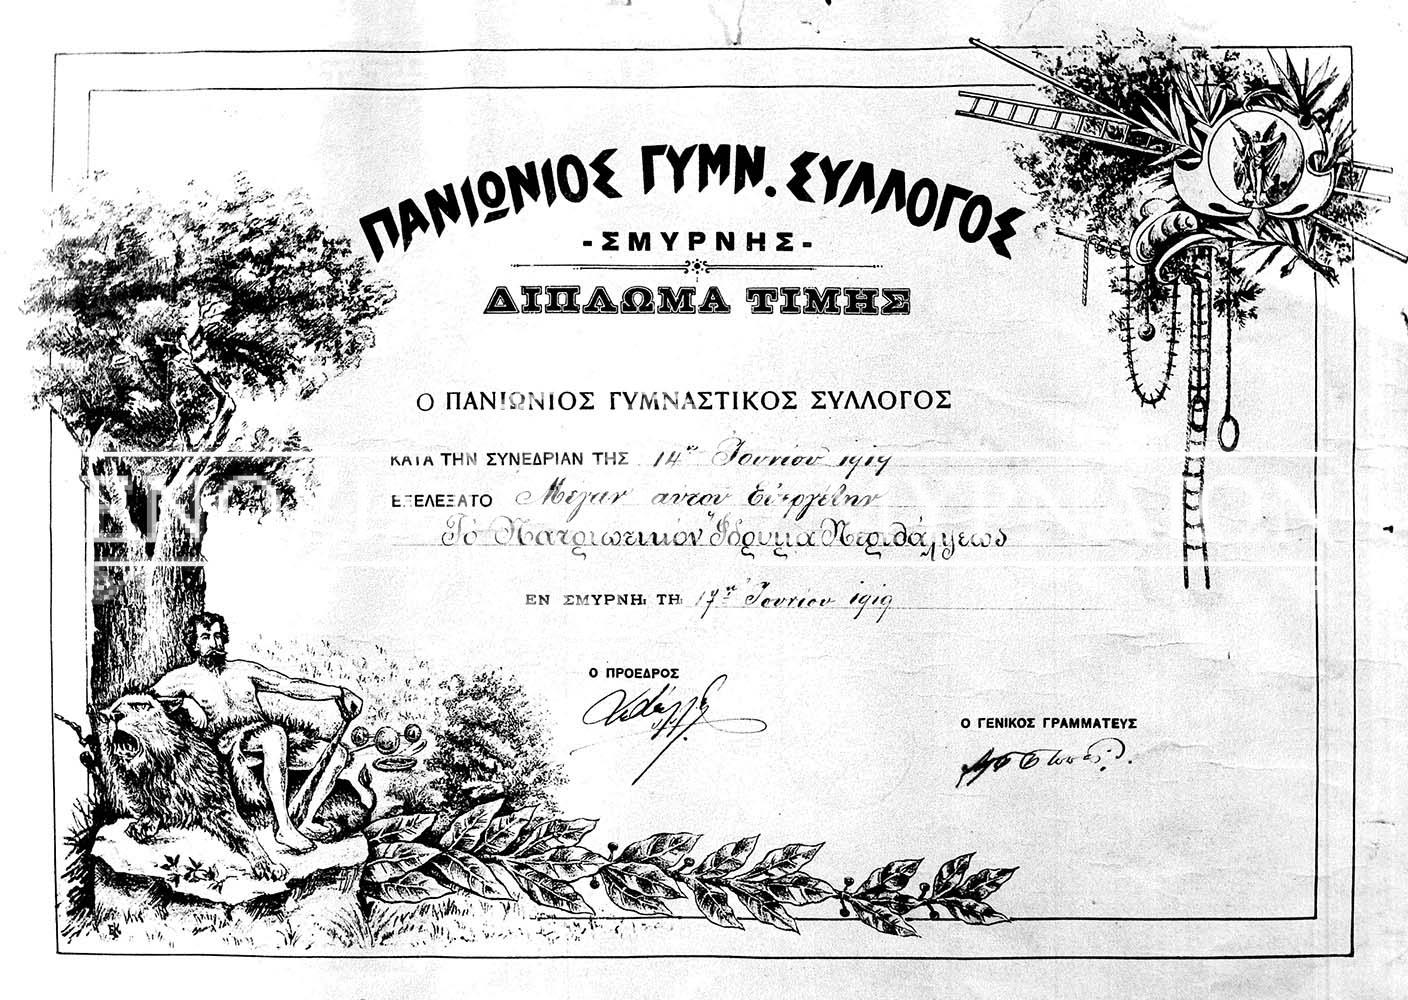 ΠΑΝΙΩΝΙΟΣ ΓΥΜΝ. ΣΥΛΛΟΓΟΣ
-ΣΜΥΡΝΗΣ-
ΔΙΠΛΩΜΑ ΤΙΜΗΣ
Ο ΠΑΝΙΩΝΙΟΣ ΓΥΜΝΑΣΤΙΚΟΣ ΣΥΛΛΟΓΟΣ
ΚΑΤΑ ΤΗΝ ΣΥΝΕΔΡΙΑΝ ΤΗΣ 14ην Ἰουνίου 1919
ΕΞΕΛΕΞΑΤΟ Μέγαν αυτού Ευεργέτην
Τό Πατριωτικόν Ἵδρυμα Περιθάλψεως
ΕΝ ΣΜΥΡΝΗι ΤΗι 17ῃ Ἰουνίου 1919
Ο ΠΡΟΕΔΡΟΣ
Ο ΓΕΝΙΚΟΣ ΓΡΑΜΜΑΤΕΥΣ